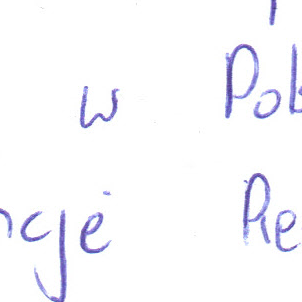 w Pol
ncje Re